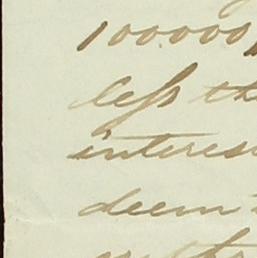 100000
less th
interes
deem